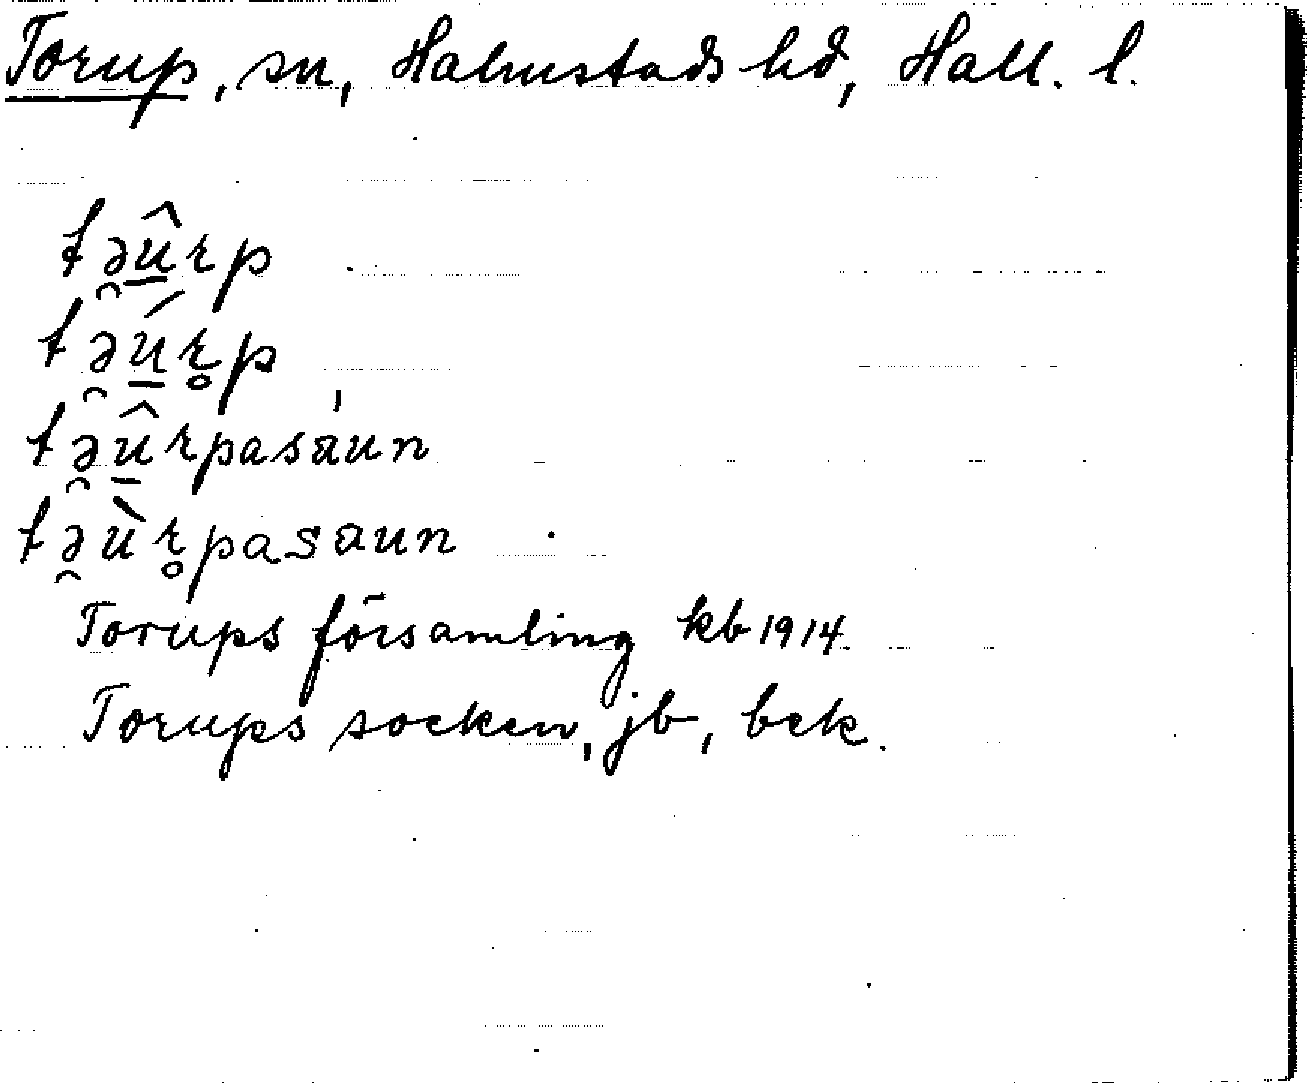 Torup, sn, Halmstads hd, Hall. l.
tə̯û̱rp
tə̯ú̱r̥p
tə̯û̱rpasaun
tə̯ùr̥pasaun
Torups församling kb 1914.
Torups socken, jb, bek.